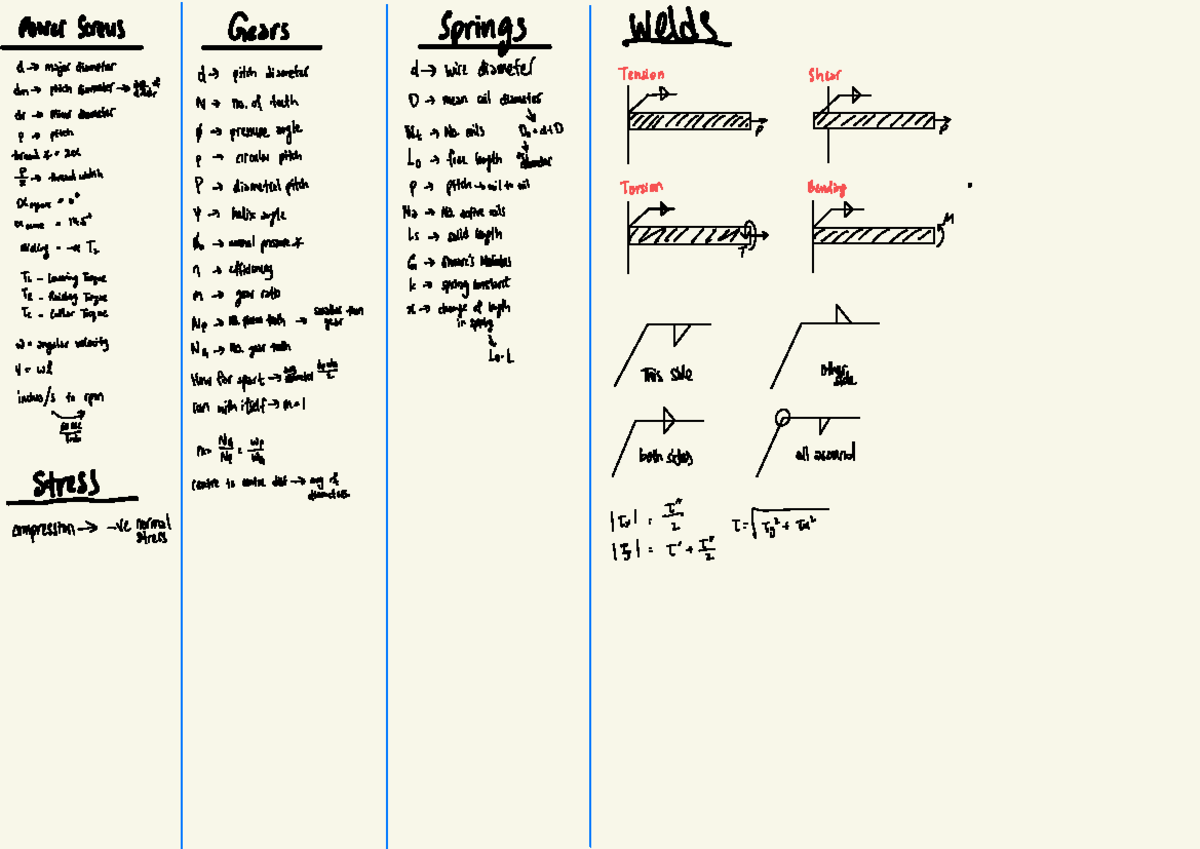 Power Screws
d → major diameter
dm → pitch diameter →
dr → minor diameter
p → pitch
thread ∡ = 2α
p/2 → thread width
α square = 0°
α acme = 14.5°
T_L - Lowering Torque
T_R - Raising Torque
T_C - Collar Torque
ω = angular velocity
inches/s to rpm
Stress
compression → -ve normal
stress
Gears
d → pitch diameter
N → no. of teeth
ϕ → pressure angle
p → circular pitch
P → diametral pitch
ψ → helix angle
ϕn → normal pressure ∡
η → efficiency
m → gear ratio
Np → no. pinion teeth → smaller than
gear
NG → no. gear teeth
How far apart →
can with itself → m=1
m = NG/NP = ωP/ωG
centre to centre dist → avg of
diameters
Springs
d → wire diameter
D → mean coil diameter
Nt → No. coils
Do = d+D
L0 → free length
diameter
p → pitch → coil to coil
Na → No. active coils
Ls → solid length
G → Shear's Modulus
k → spring constant
x → change of length
in spring
L0-L
Welds
Tension
Shear
P
P
Torsion
Bending
T
M
This side
Other
side
both sides
all around
|τx| = τ"/2
τ = √(τy² + τx²)
|τy| = τ' + τ"/2